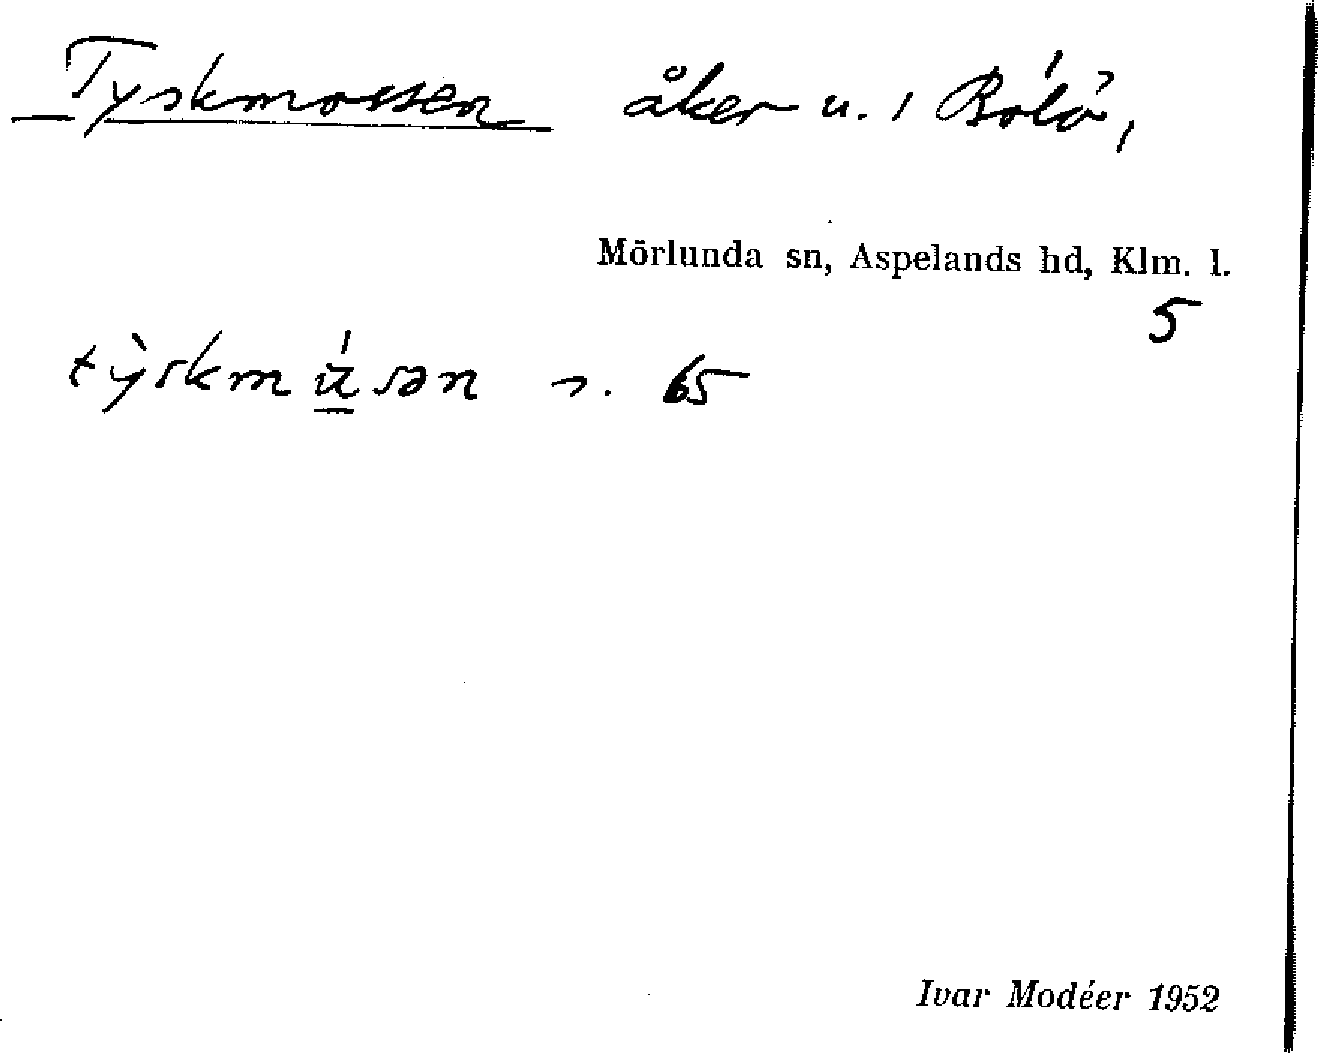 Tyskmossen åker u. i Bölö,
Mörlunda sn, Aspelands hd, Klm. l.
5
tỳskmúsən s. 65
Ivar Modéer 1952